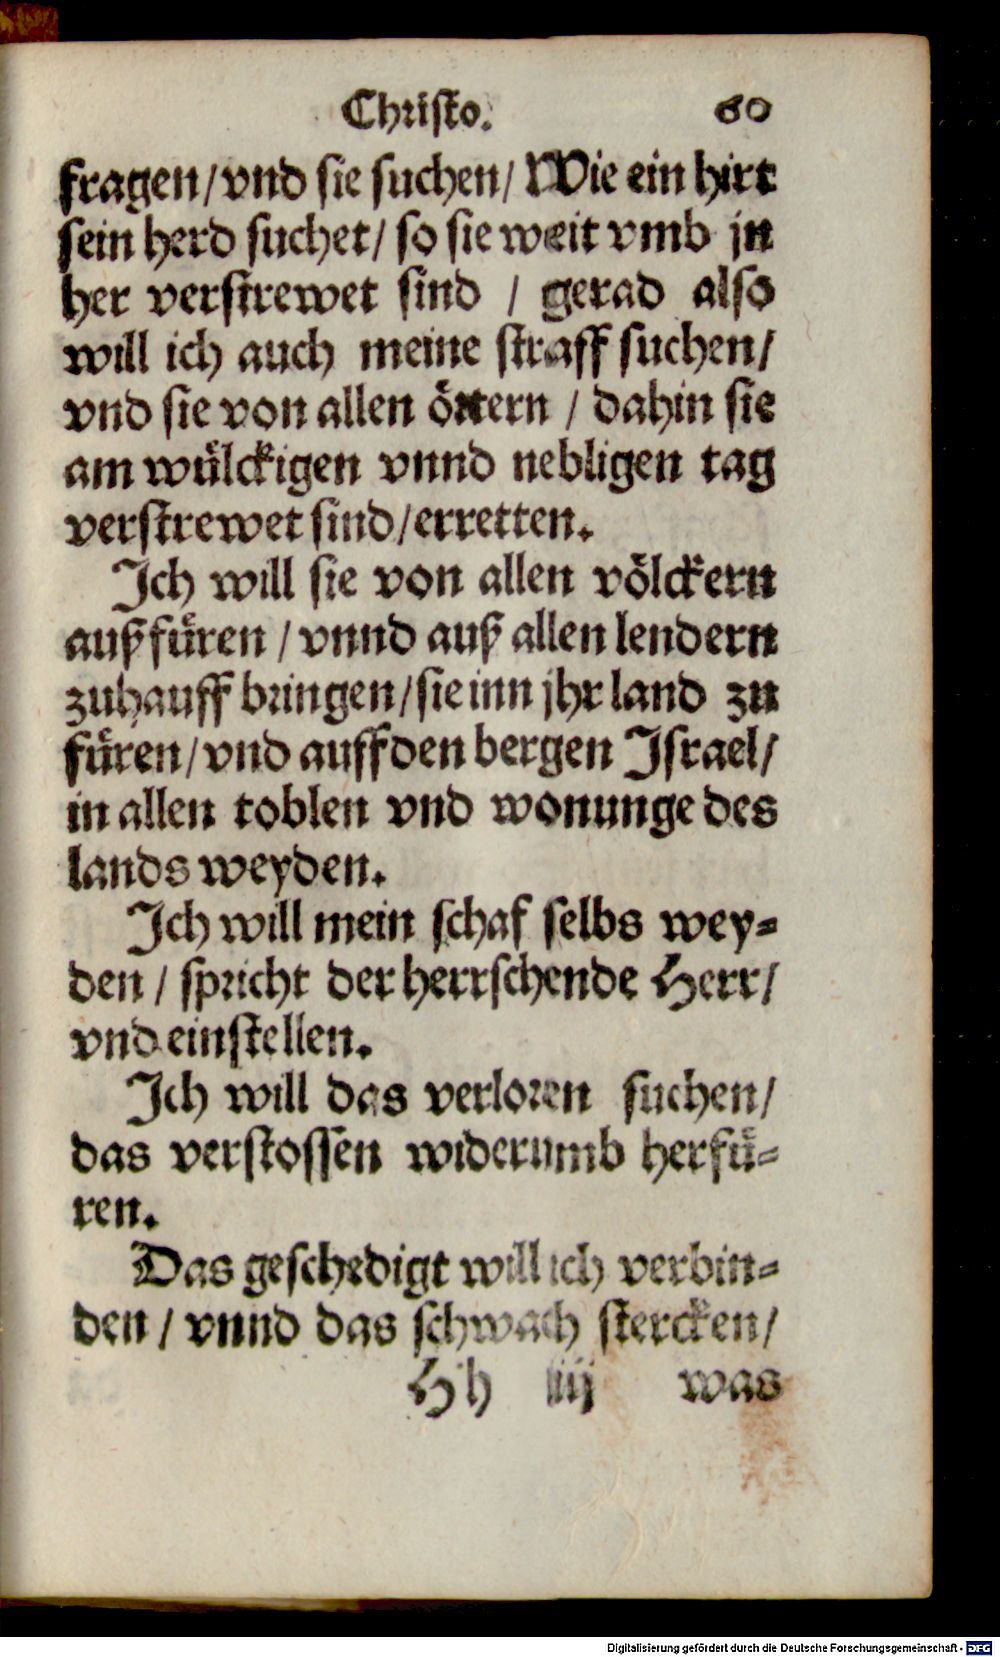 Christo. 60
fragen/ vnd sie suchen/ Wie ein hirt
sein herd suchet/ so sie weit vmb jn
her verstrewet sind / gerad also
will ich auch meine straff suchen/
vnd sie von allen örtern / dahin sie
am wülckigen vnnd nebligen tag
verstrewet sind/ erretten.
Ich will sie von allen völckern
außfüren / vnnd auß allen lendern
zuhauff bringen/ sie inn jhr land zu
füren/ vnd auff den bergen Israel/
in allen toblen vnd wonunge des
lands weyden.
Ich will mein schaf selbs wey=
den / spricht der herrschende Herr/
vnd einstellen.
Ich will das verloren suchen/
das verstossen widerumb herfü=
ren.
Das geschedigt will ich verbin=
den / vnnd das schwach stercken/
Hh iiij was
Digitalisierung gefördert durch die Deutsche Forschungsgemeinschaft - DFG